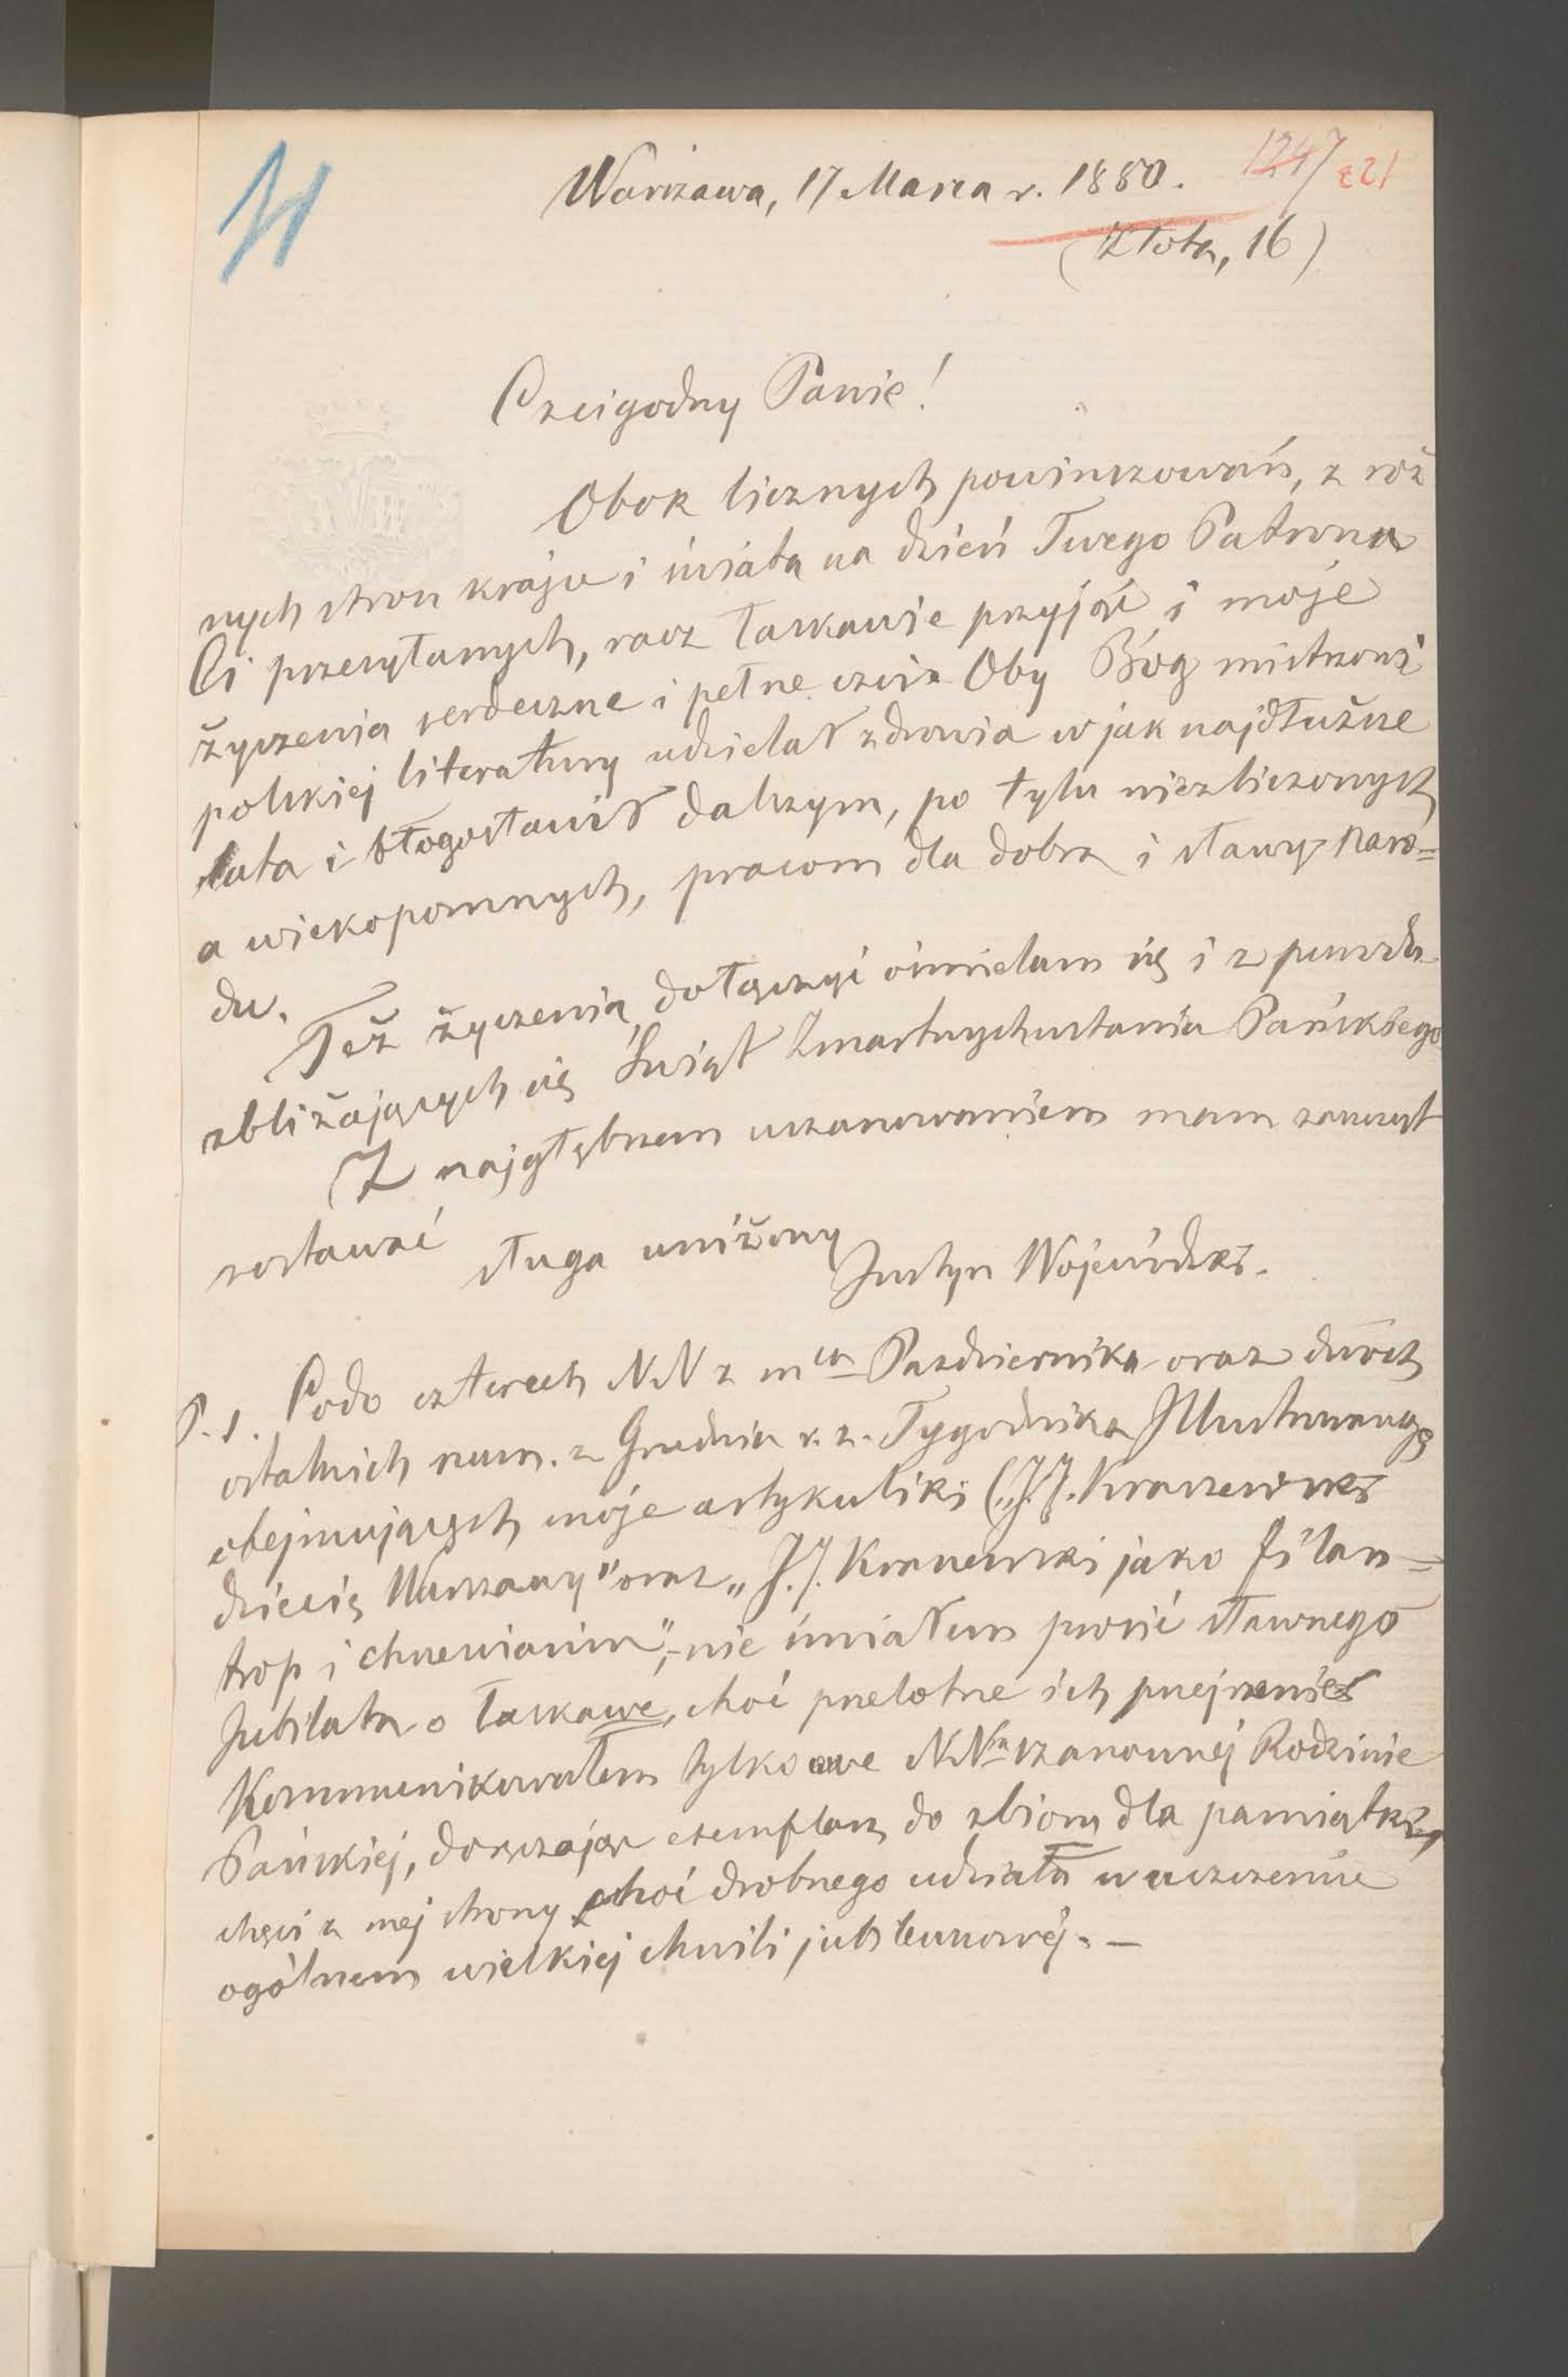 Warszawa, 17 Marca r. 1880.
(Złota, 16)
Czcigodny Panie!
Obok licznych powinszowań, z róż
nych stron kraju i świata na dzień Twego Patrona
Ci przesyłanych, racz łaskawie przyjąć i moje
życzenia serdeczne i pełne czci. Oby Bóg mistrzowi
polskiej literatury udzielał zdrowia w jak najdłuższe
lata i błogosławił dalszym, po tylu niezliczonych
a wiekopomnych, pracom dla dobra i sławy naro=
du.
Też życzenia dołączyć ośmielam się i z powodu
zbliżających się Świąt Zmartwychwstania Pańskiego
Z najgłębszem uszanowaniem mam zaszczyt
zostawać
sługa uniżony
Justyn Wojewódzki.
P. S. Codo czterech NN z mca Pazdziernika oraz dwóch
ostatnich num. z Grudnia r. z. Tygodnika Illustrowanego
obejmujących moje artykuliki („J. I. Kraszewski
dziecię Warszawy" oraz „J. I. Kraszewski jako filan=
trop i chrześcianin",- nie śmiałem prosić sławnego
Jubilata o łaskawe, choć przelotne ich przejrzenie
Kommunikowałem tylko owe NNra szanownéj Rodzinie
Pańskiej, doręczając exemplarz do zbioru dla pamiątki,
chęci z mej strony choć drobnego udziału w uczczeniu
ogólnem wielkiej chwili jubileuszowéj. —